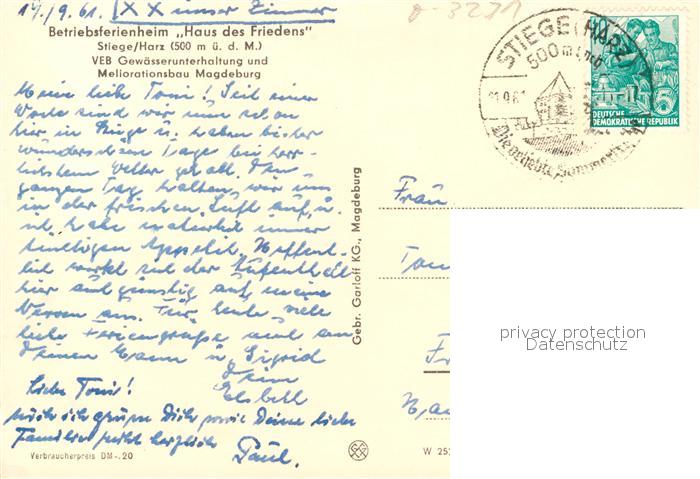 19./9.61. XX unser Zimmer
Betriebsferienheim „Haus des Friedens"
Stiege/Harz (500 m ü. d. M.)
VEB Gewässerunterhaltung und
Meliorationsbau Magdeburg
Meine liebe Toni! Seit einer
Woche sind wir nun schon
hier in Stiege u. haben bisher
wunderschöne Tage bei herr-
lichstem Wetter gehabt. Den
ganzen Tag halten wir uns
in der frischen Luft auf, u.
ich habe immer
Appetit. Hoffent-
lich wirkt sich der Aufenthalt
hier auch günstig auf meine
Nerven aus. Für heute viele
liebe Feriengrüße auch an
Deinen Mann u. Sigrid
Deine
Elsbeth
Liebe Toni!
Auch ich grüße Dich sowie Deine liebe
Familie recht herzlich
Paul.
Verbraucherpreis DM -.20
Gebr. Garloff KG., Magdeburg
W 25
STIEGE (HARZ)
500 m ü.
9.61
DEUTSCHE
DEMOKRATISCHE REPUBLIK
5
Frau
privacy protection
Datenschutz